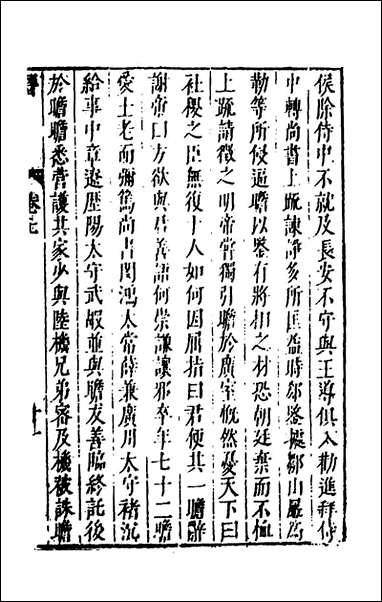 侯除侍中不就及長安不守與王導俱入勸進拜侍
中轉尚書上疏諫諍多所匡益時郗鑒據鄒山屢爲
勒等所侵逼瞻以鑒有將相之材恐朝廷棄而不恤
上疏請徵之明帝嘗獨引瞻於廣室慨然憂天下曰
社稷之臣無復十人如何因屈指曰君便其一瞻辭
謝帝曰方欲與君善語何崇謙讓邪卒年七十二瞻
愛士老而彌篤尚書閔鴻太常薛兼廣川太守褚沉
給事中章遼歷陽太守武嘏並與瞻友善臨終託後
於瞻瞻悉營護其家少與陸機兄弟審及機被誅瞻
卷